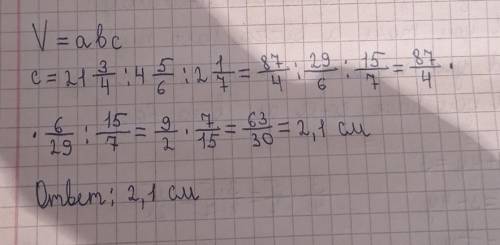 V = abc
c = 21 3/4 : 4 5/6 : 2 1/7 = 87/4 : 29/6 : 15/7 = 87/4 ·
· 6/29 : 15/7 = 9/2 · 7/15 = 63/30 = 2,1 см
Ответ: 2,1 см